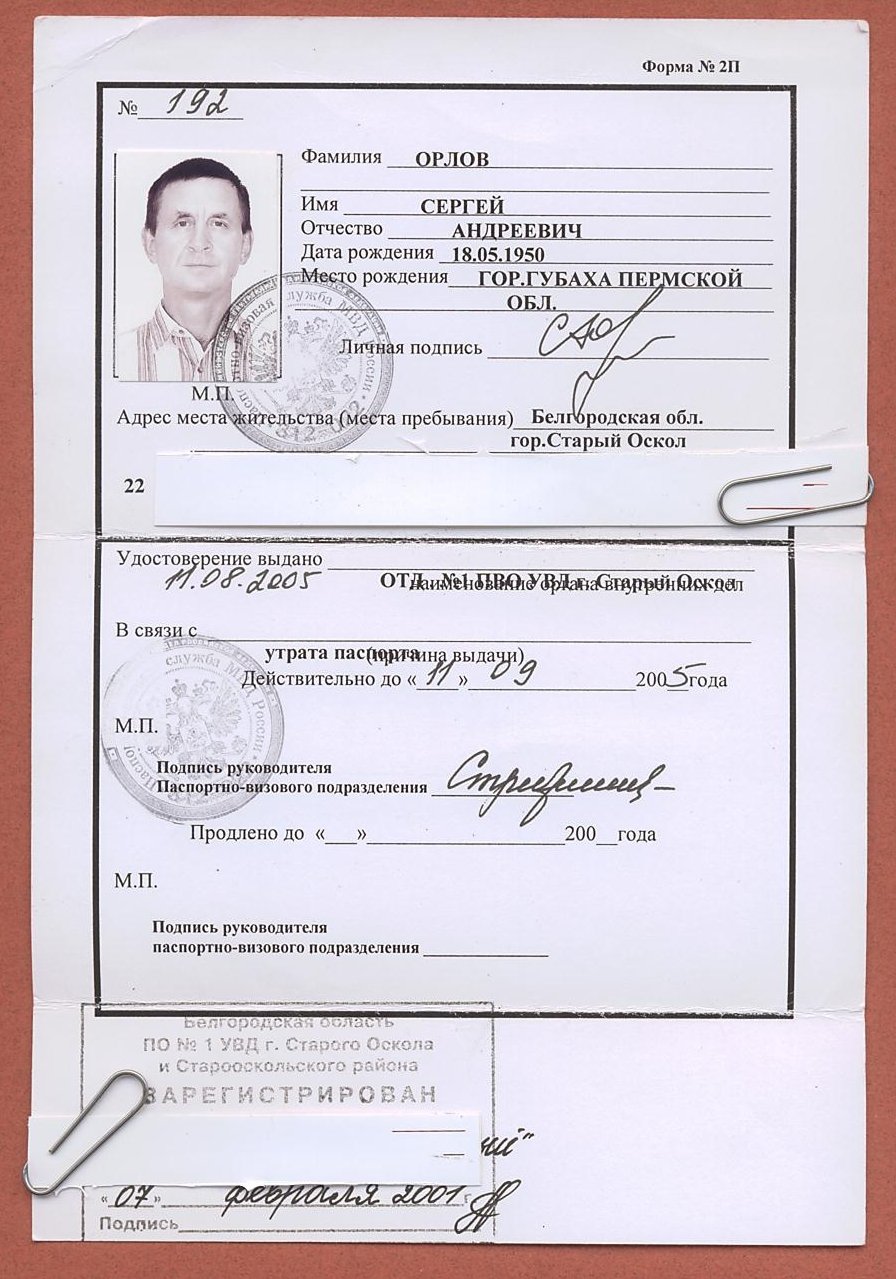 Форма № 2П
№ 192
Фамилия ОРЛОВ
Имя СЕРГЕЙ
Отчество АНДРЕЕВИЧ
Дата рождения 18.05.1950
Место рождения ГОР.ГУБАХА ПЕРМСКОЙ
ОБЛ.
служба МВД России
Личная подпись
М.П.
Адрес места жительства (места пребывания) Белгородская обл.
гор.Старый Оскол
22
Удостоверение выдано
11.08.2005 ОТД. №1 ПВО УВД г. Старый Оскол
наименование органа внутренних дел
В связи с
утрата паспорта
(причина выдачи)
служба МВД России
Действительно до «11» 09 2005 года
М.П.
Подпись руководителя
Паспортно-визового подразделения
Продлено до « » 200 года
М.П.
Подпись руководителя
паспортно-визового подразделения
Белгородская область
ПО № 1 УВД г. Старого Оскола
и Старооскольского района
ЗАРЕГИСТРИРОВАН
"07" февраля 2001 г.
Подпись